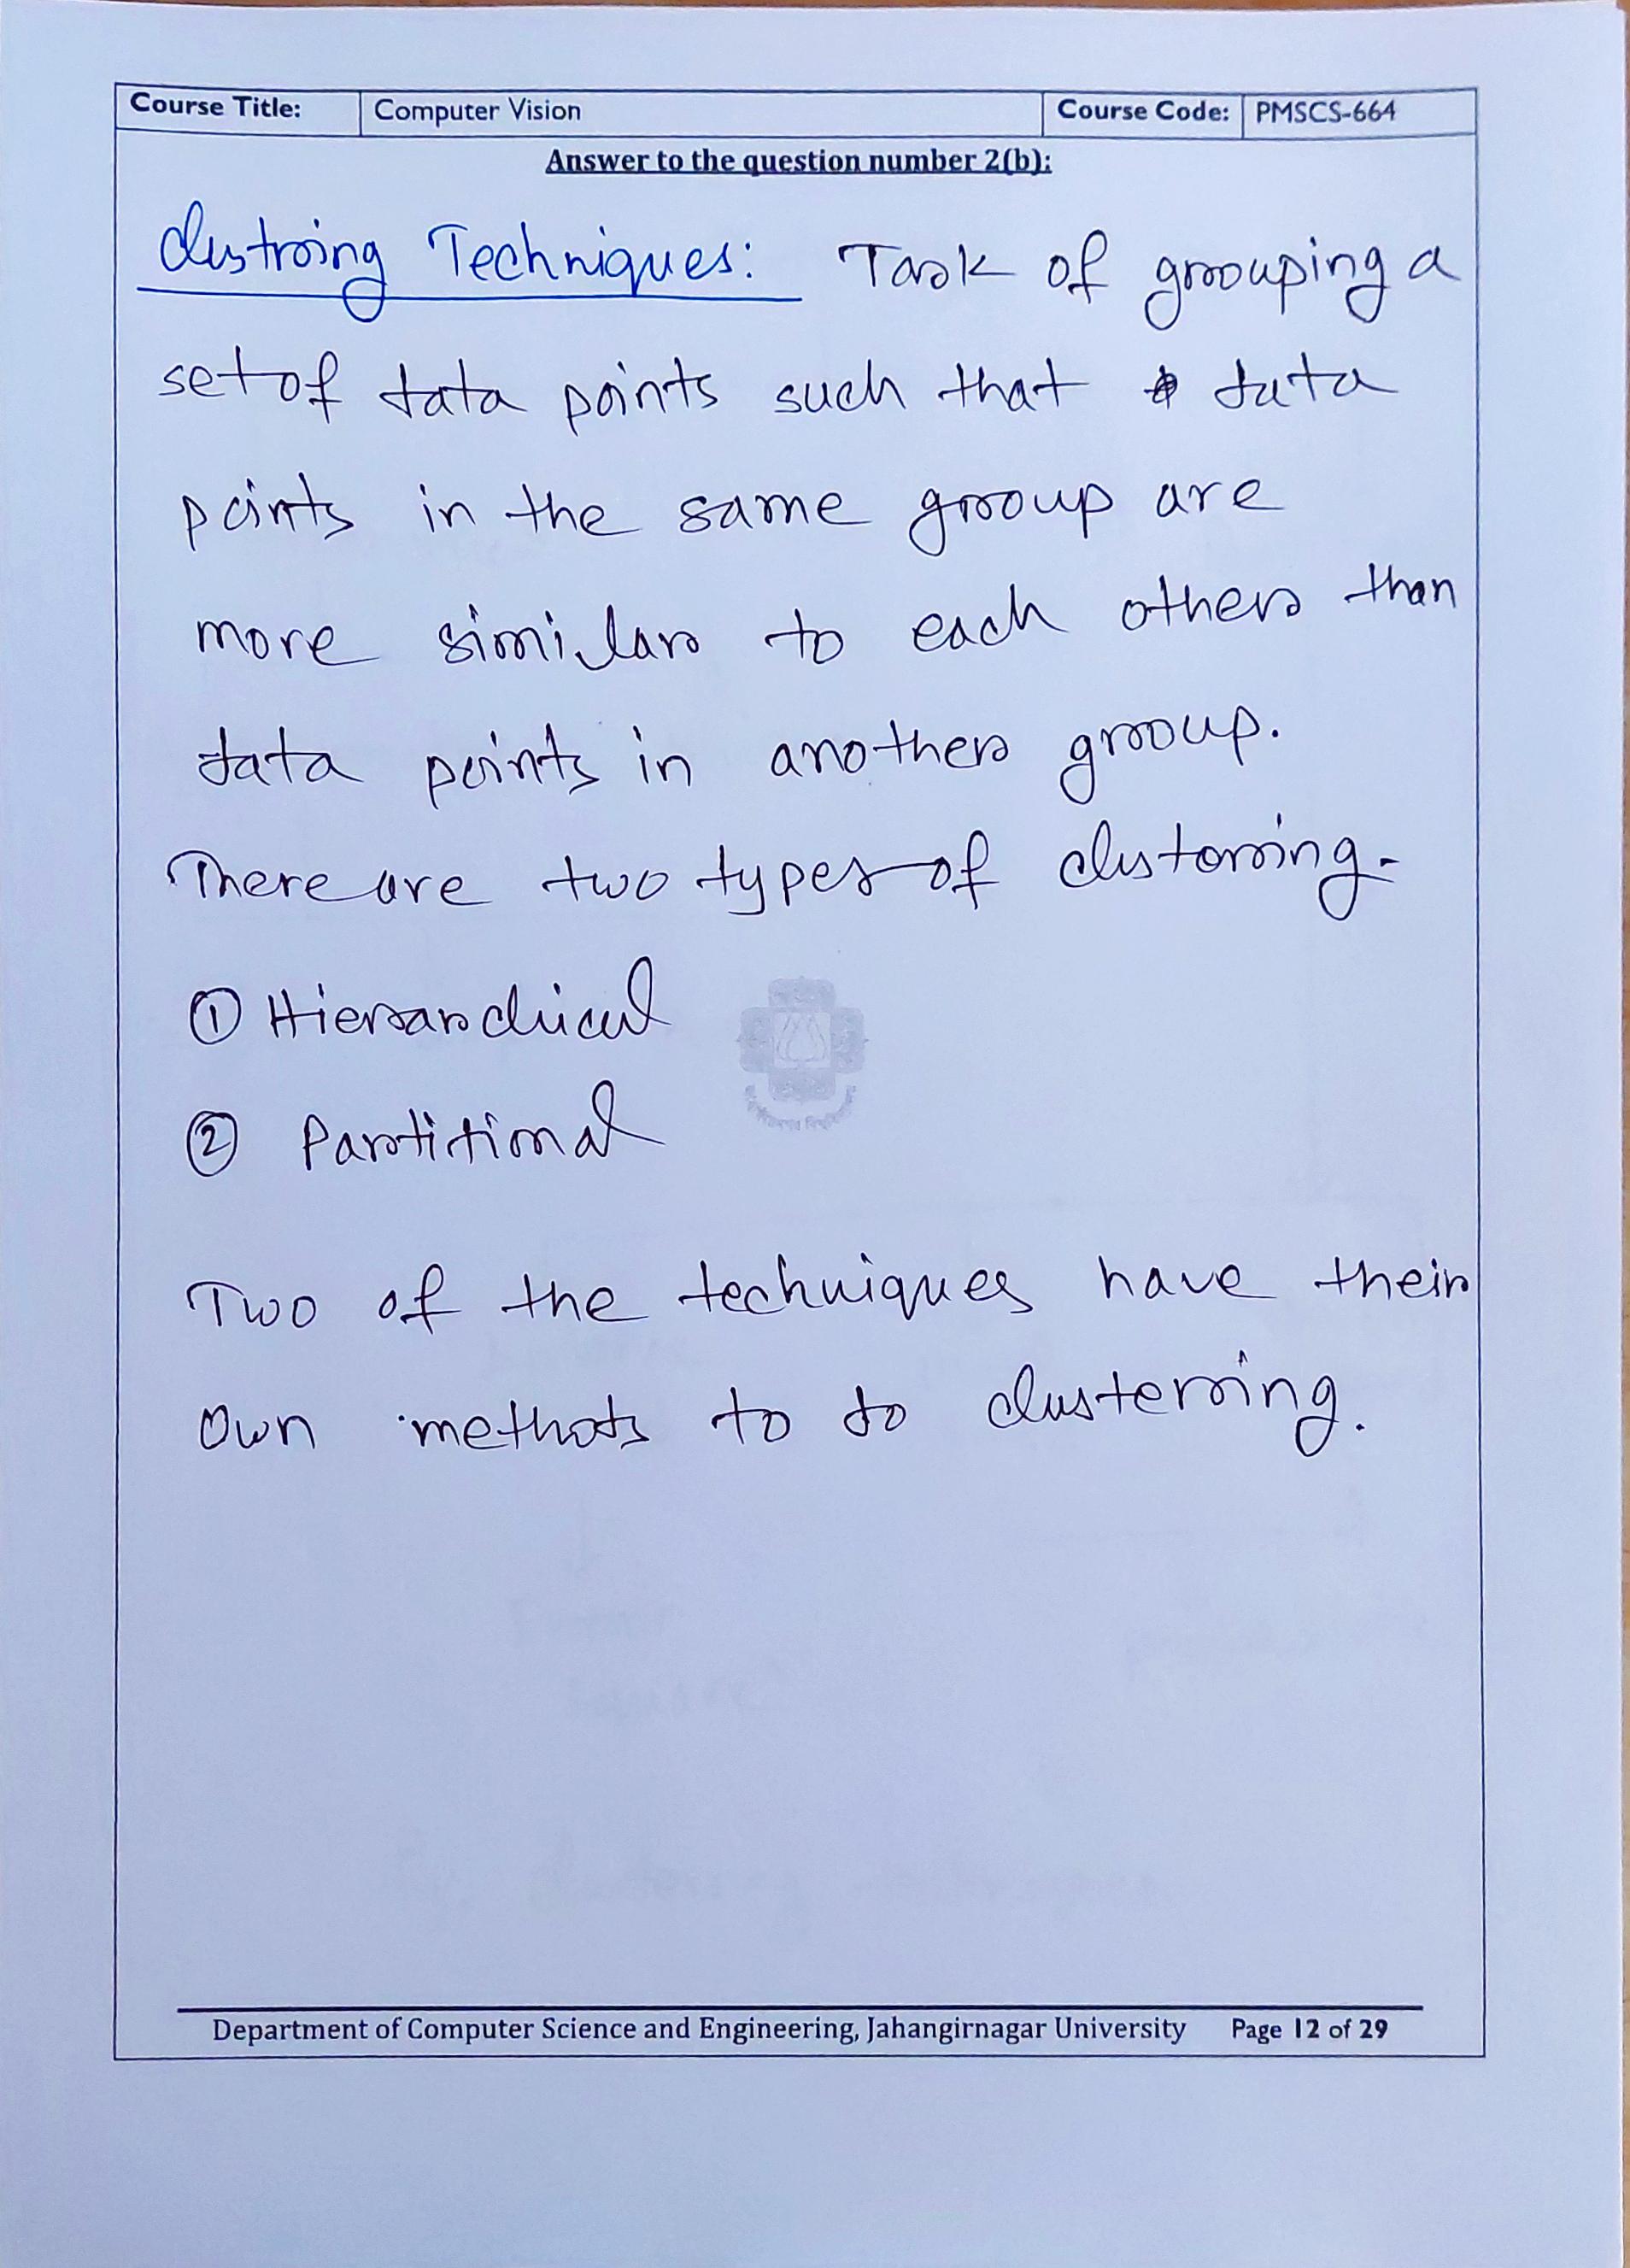 Course Title: Computer Vision Course Code: PMSCS-664
Answer to the question number 2(b):
Clustring Techniques: Task of grouping a
set of data points such that data
points in the same group are
more similar to each other than
data points in another group.
There are two types of clustering-
① Hierarchical
② Partitional
Two of the techniques have their
own methods to do clustering.
Department of Computer Science and Engineering, Jahangirnagar University Page 12 of 29